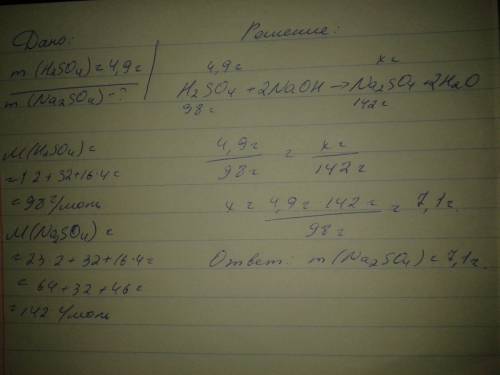 Дано:
m (H₂SO₄) = 4,9 г
m (Na₂SO₄) - ?
M (H₂SO₄) =
= 1·2 + 32 + 16·4 =
= 98 г/моль
M (Na₂SO₄) =
= 23·2 + 32 + 16·4 =
= 64 + 32 + 46 =
= 142 г/моль
Решение:
4,9 г x г
H₂SO₄ + 2NaOH → Na₂SO₄ + 2H₂O
98 г 142 г
4,9 г / 98 г = x г / 142 г
x = 4,9 г · 142 г / 98 г = 7,1 г.
Ответ: m (Na₂SO₄) = 7,1 г.